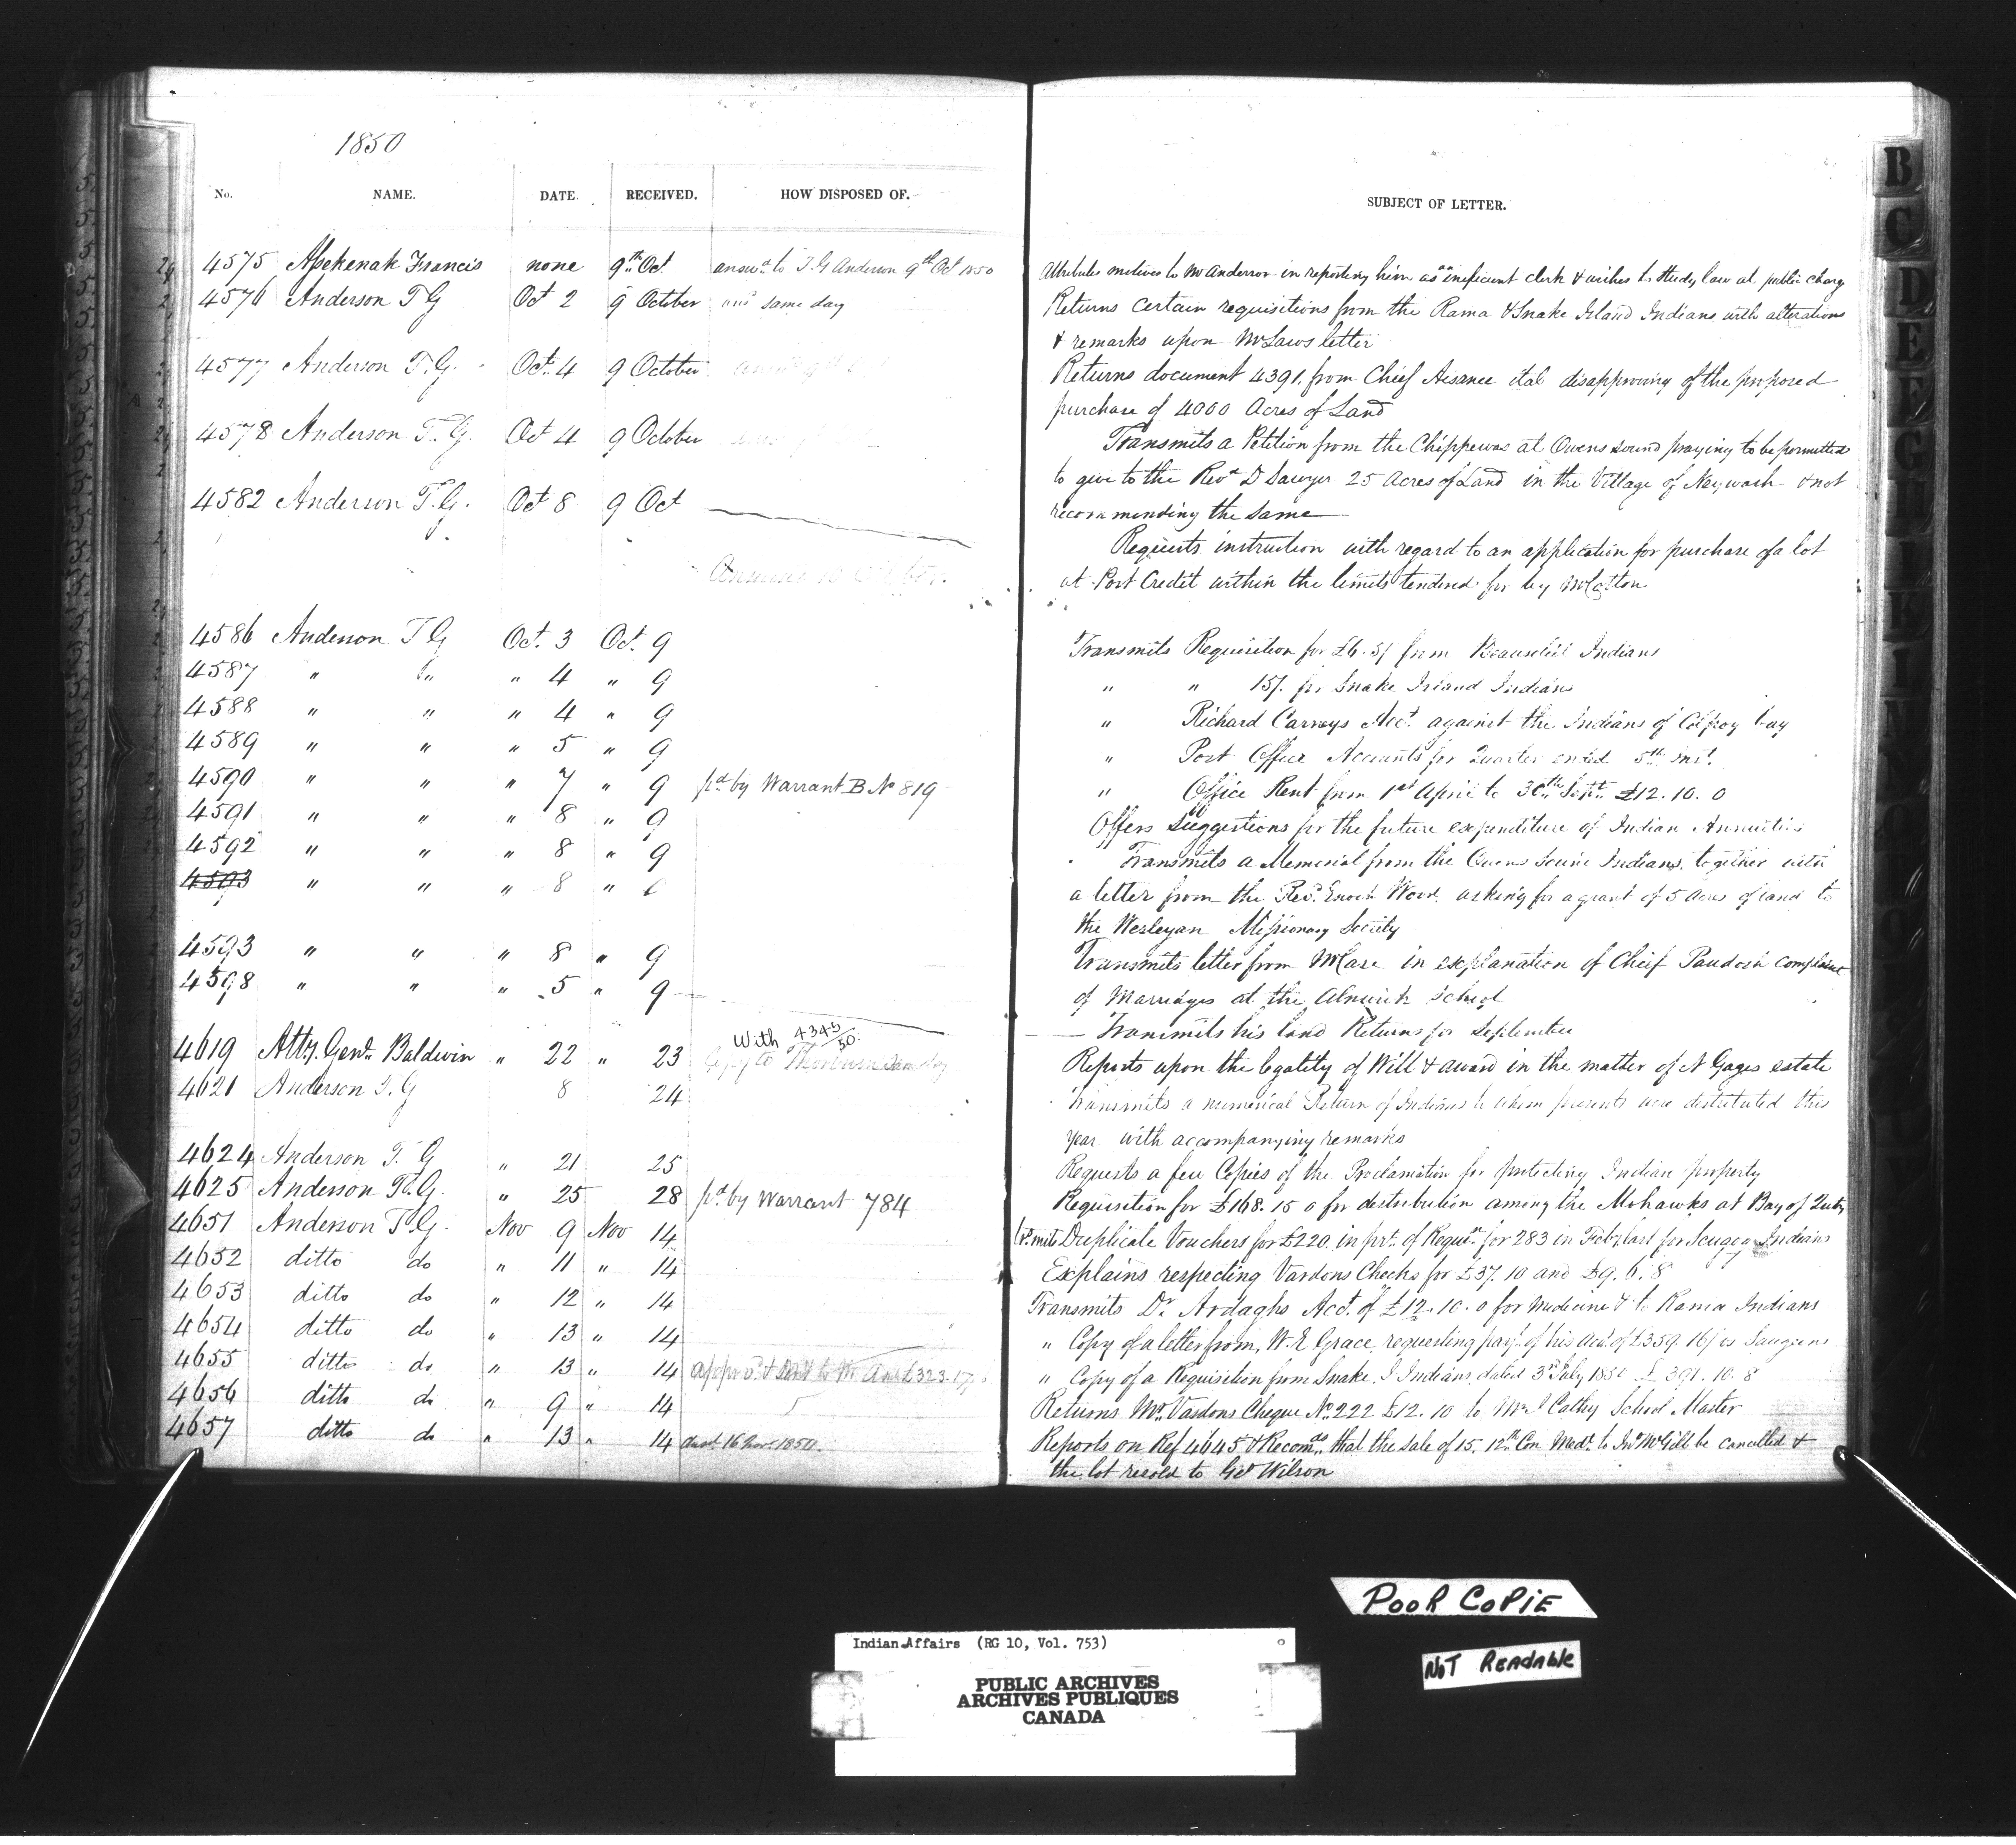 1850
No. NAME. DATE. RECEIVED. HOW DISPOSED OF.
4575 Assekenak Francis none 9th Oct answd to T.G Anderson 9th Oct 1850
4576 Anderson T G Oct 2 9 October ansd same day
4577 Anderson T.G. Oct. 4 9 October
4578 Anderson T.G. Oct 4 9 October
4582 Anderson T.G. Oct 8 9 Oct
4586 Anderson T G Oct. 3 Oct. 9
4587 " " " 4 " 9
4588 " " " 4 " 9
4589 " " " 5 " 9
4590 " " " 7 " 9 pd by Warrant B No 819
4591 " " " 8 " 9
4592 " " " 8 " 9
4593 " " " 8 "
4593 " " " 8 " 9
4598 " " " 5 " 9
With 4345/50.
4619 Atty. Genl. Baldwin " 22 " 23 Copy to Thorburn same day
4621 Anderson T.G 8 24
4624 Anderson T. G " 21 25
4625 Anderson T.G. " 25 28 pd by Warrant 784
4651 Anderson T.G. Nov 9 Nov 14
4652 ditto do " 11 " 14
4653 ditto do " 12 " 14
4654 ditto do " 13 " 14
4655 ditto do " 13 " 14 approvd & Sent to Mr £323.17
4656 ditto do " 9 " 14
4657 ditto do " 13 " 14 ansd. 16 Nov. 1850.
SUBJECT OF LETTER.
Attributes motives to Mr Anderson in reporting him as an ineficient clerk & wishes to study law at public charg
Returns Certain requisitions from the Rama & Snake Island Indians with alterations
& remarks upon Mr Laws letter
Returns document 4391. from Chief Aisance etal disapproving of the proposed
purchase of 4000 Acres of Land
Transmits a Petition from the Chippewas at Owens sound praying to be permitted
to give to the Revd D Sawyer 25 Acres of Land in the Village of Neywash & not
recommending the same
Requests instruction with regard to an application for purchase of a lot
at Port Credit within the limits tendered for by
Transmits Requisition for £6.5/ from Beausoleil Indians
" " 15/. for Snake Island Indians
" Richard Carneys Acct. against the Indians of Colpoy bay
" Post Office Accounts for Quarter ended 5th inst.
" Office Rent from 1st April to 30th Septr. £12.10.0
Offers suggestions for the future expenditure of Indian Annuities
Transmits a Memorial from the Owens Sound Indians, together with
a letter from the Revd. Enoch Wood, asking for a grant of 5 acres of land to
the Wesleyan Missionary Society
Transmits letter from Mr Case in explanation of Cheif Paudash complaint
of Marriages at the Alnwick School
Transmits his land Returns for September
Reports upon the legality of Will & award in the matter of N Gages estate
Transmits a numerical Return of Indians to whom presents were distributed this
year with accompanying remarks
Requests a few Copies of the Proclamation for protecting Indian property
Requisition for £168.15 0 for distribution among the Mohawks at Bay of Quinty
Duplicate Vouchers for £220. in prt. of Requisn for 283 in Feby last for Scugog Indians
Explains respecting Vardons Checks for £37.10 and £9.6.8
Transmits Dr. Ardaghs Acct. of £12.10.0 for Medicine &c to Rama Indians
" Copy of a letter from W.E Grace requesting payt. of his acct. of £359.16/ vs Saugeens
" Copy of a Requisition from Snake I Indians dated 3rd July 1850 £391.10.8
Returns Mr. Vardons Cheque No. 222 £12.10 to Mr J Cathy School Master
Reports on Ref 4645 & Recomds that the sale of 15. 12th Con Medt. to Jno McGill be cancelled &
the lot resold to Geo Wilson
B
C
D
E
F
G
H
I
K
POOR COPIE
NOT READABLE
Indian Affairs (RG 10, Vol. 753)
PUBLIC ARCHIVES
ARCHIVES PUBLIQUES
CANADA